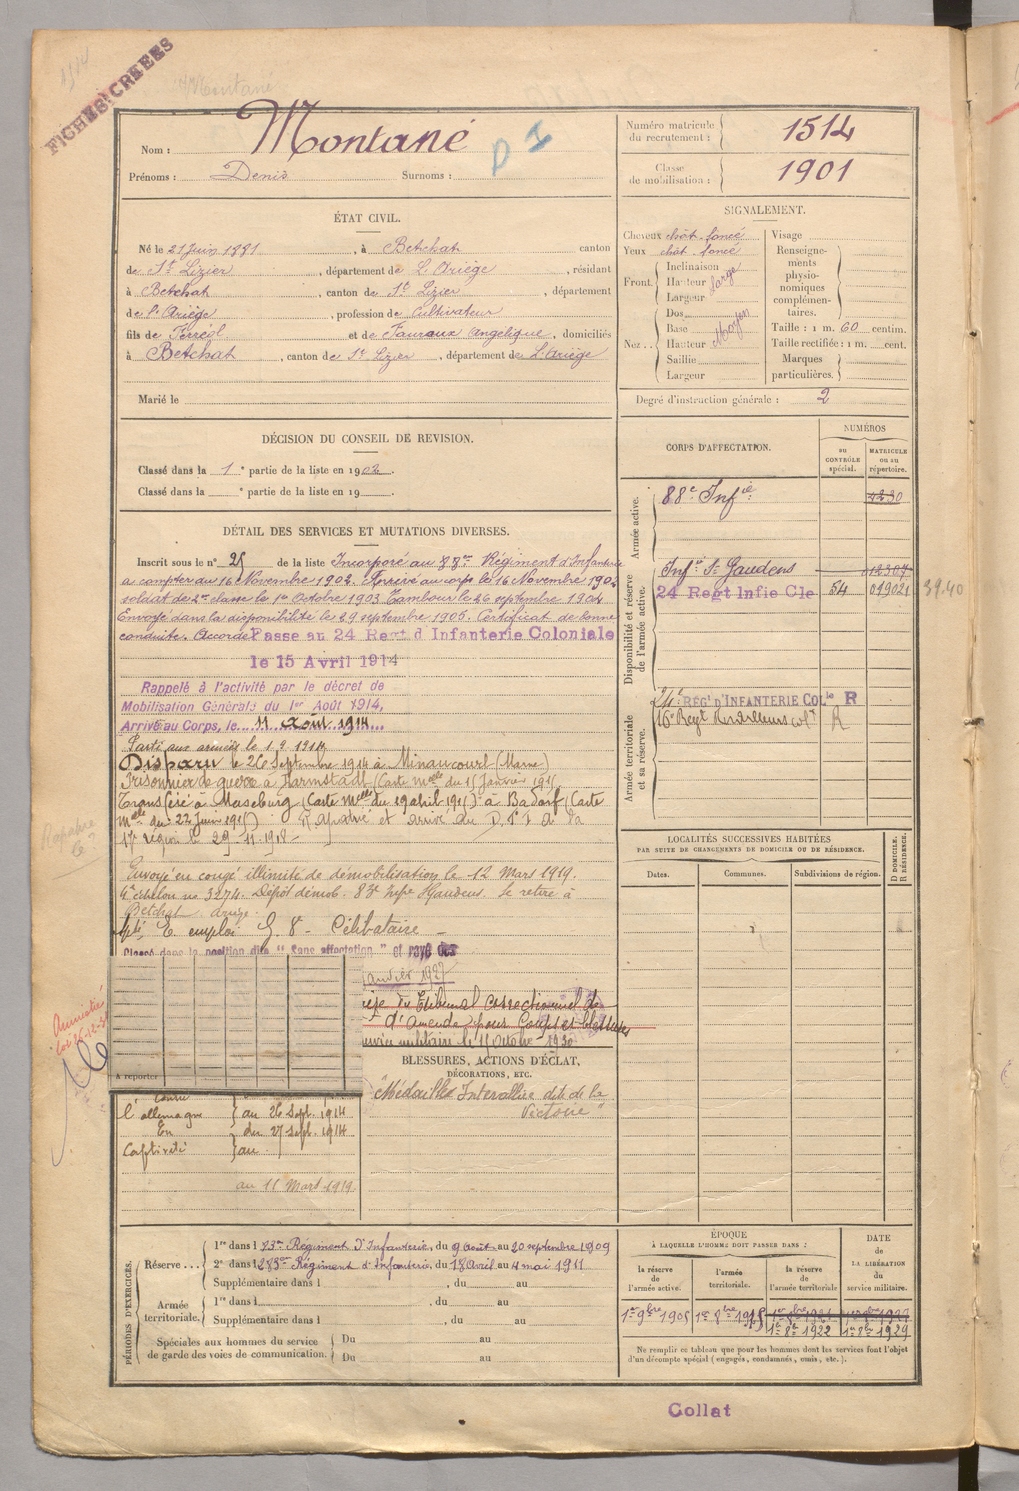 FICHES CRÉÉES
Montané
Nom : Montané
D I
Prénoms : Denis Surnoms :
Numéro matricule du recrutement : 1514
Classe de mobilisation : 1901
ÉTAT CIVIL.
Né le 21 Juin 1881, à Betchat canton
de St Lizier, département de L'Ariège, résidant
à Betchat, canton de St Lizier, département
de l'Ariège, profession de Cultivateur
fils de Ferréol et de Fauraux Angelique, domiciliés
à Betchat, canton de St Lizier, département de L'Ariège
Marié le
SIGNALEMENT.
Cheveux chât. foncé
Yeux chât. foncé
Front. Inclinaison
Hauteur large
Largeur
Nez.. Dos
Base Moyen
Hauteur
Saillie
Largeur
Visage
Renseignements physionomiques complémentaires.
Taille : 1 m. 60 centim.
Taille rectifiée : 1 m. cent.
Marques particulières.
Degré d'instruction générale : 2
DÉCISION DU CONSEIL DE REVISION.
Classé dans la 1re partie de la liste en 1902.
Classé dans la e partie de la liste en 19
DÉTAIL DES SERVICES ET MUTATIONS DIVERSES.
Inscrit sous le n° 25 de la liste Incorporé au 88me Régiment d'Infanterie
à compter du 16 Novembre 1902. Arrivé au corps le 16 Novembre 1902
soldat de 2me classe le 1er Octobre 1903 Tambour le 26 septembre 1904
Envoyé dans la disponibilité le 29 septembre 1905. Certificat de bonne
conduite. Accordé Passe au 24 Regt d'Infanterie Coloniale
le 15 Avril 1914
Rappelé à l'activité par le décret de
Mobilisation Générale du 1er Août 1914,
Arrivé au Corps, le 11 août 1914
Parti aux armées le 1.9.1914
Disparu le 26 Septembre 1914 à Minaucourt (Marne)
Prisonnier de guerre à Darmstadt (Carte melle du 15 Janvier 1915
Transféré à Maseburg (Carte melle du 19 abril 1915) à Badorf (Carte
melle du 22 juin 1915) Rapatrié et arrivé au D.P.I à la
17e région le 29-11-1918-
Envoyé en congé illimité de démobilisation le 12 Mars 1919.
4e échelon no 3274. Dépôt démob. 83e Infie St Gaudens. Se retire à
Betchat. Ariège.
Célibataire
Classé dans la position dite "Sans affectation" et rayé des
Janvier 1927
du Tribunal correctionnel de
d'Amende pour Coups et blessures
service militaire le 11 octobre 1930
Amnistié
A reporter
BLESSURES, ACTIONS D'ÉCLAT,
DÉCORATIONS, ETC.
"Médaille Interalliée dite de la
Victoire"
l'allemagne au 26 Sept. 1914
En du 27 Sept. 1914
Captivité au
au 11 Mars 1919
CORPS D'AFFECTATION.
NUMÉROS
au CONTRÔLE spécial.
MATRICULE ou au répertoire.
Armée active.
88e Infie 4230
Disponibilité et réserve de l'armée active.
Infie St Gaudens 12307
24 Regt Infie Cle 54 019021 39.40
Armée territoriale et sa réserve.
24e RÉGt D'INFANTERIE COLle R
16e Régt Tirailleurs colx R
LOCALITÉS SUCCESSIVES HABITÉES
PAR SUITE DE CHANGEMENTS DE DOMICILE OU DE RÉSIDENCE.
Dates. Communes. Subdivisions de région.
D DOMICILE. R RÉSIDENCE.
PÉRIODES D'EXERCICES.
Réserve... 1re dans l 83me Régiment d'Infanterie, du 9 août au 20 septembre 1909
2e dans l 283me Régiment d'Infanterie, du 18 Avril au 4 mai 1911
Supplémentaire dans l , du au
Armée territoriale, 1re dans l , du au
Supplémentaire dans l , du au
Spéciales aux hommes du service de garde des voies de communication. Du au
Du au
ÉPOQUE
À LAQUELLE L'HOMME DOIT PASSER DANS :
la réserve de l'armée active.
l'armée territoriale.
la réserve de l'armée territoriale
DATE de LA LIBÉRATION du service militaire.
1er 9bre 1905 1er 8bre 1915 1er 8bre 1921 1er 8bre 1927
1er 8bre 1922 1er 8bre 1929
Ne remplir ce tableau que pour les hommes dont les services font l'objet
d'un décompte spécial (engagés, condamnés, omis, etc.).
Collat